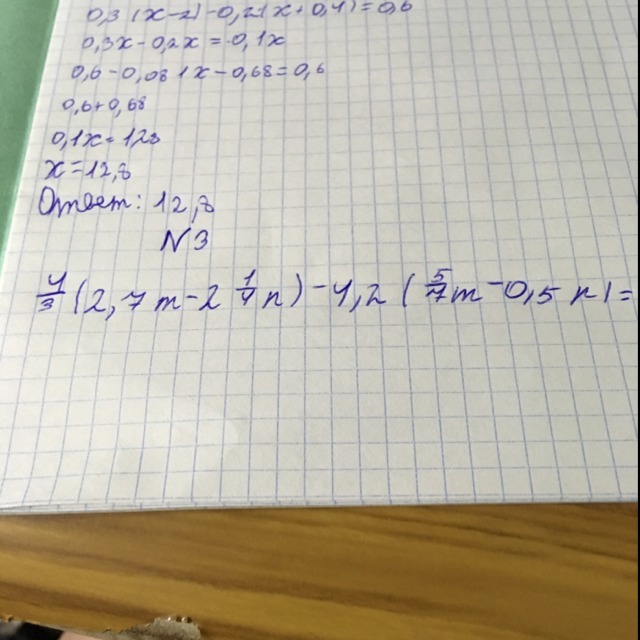 0,3 (x-2) - 0,2(x+0,4)=0,6
0,3x-0,2x=0,1x
0,6-0,08 1x-0,68=0,6
0,6+0,68
0,1x=1,28
x=12,8
Ответ: 12,8
N3
4/3 (2,7m-2 1/4 n) - 4,2 ( 5/7 m - 0,5 n) =